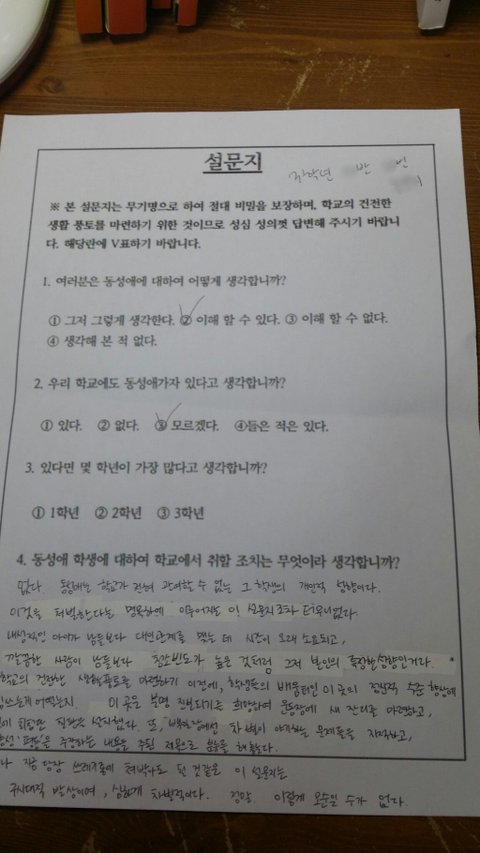 설문지
학년 반 번
※ 본 설문지는 무기명으로 하여 절대 비밀을 보장하며, 학교의 건전한
생활 풍토를 마련하기 위한 것이므로 성심 성의껏 답변해 주시기 바랍니
다. 해당란에 V표하기 바랍니다.
1. 여러분은 동성애에 대하여 어떻게 생각합니까?
① 그저 그렇게 생각한다. ② 이해 할 수 있다. ③ 이해 할 수 없다.
④ 생각해 본 적 없다.
2. 우리 학교에도 동성애가자 있다고 생각합니까?
① 있다. ② 없다. ③ 모르겠다. ④들은 적은 있다.
3. 있다면 몇 학년이 가장 많다고 생각합니까?
① 1학년 ② 2학년 ③ 3학년
4. 동성애 학생에 대하여 학교에서 취할 조치는 무엇이라 생각합니까?
없다. 동성애는 학교가 전혀 관여할 수 없는 그 학생의 개인적 성향이다.
이것을 처벌한다는 명목하에 이루어지는 이 설문지조차 터무니없다.
내성적인 아이가 남들보다 대인관계를 맺는 데 시간이 오래 소요되고,
깔끔한 사람이 남들보다 청소빈도가 높은 것처럼 그저 본인의 특정한 성향인거다.
학교의 건전한 생활풍토를 마련하기 이전에, 학생들의 배움터인 이 곳의 정신적 수준 향상에
힘쓰는게 어떨지. 이 곳은 북면 진보되기를 희망하여 운동장에 새 잔디를 마련하고,
설치했다. 또, 에서 차별이 야기하는 문제들을 자각하고,
주장하는 내용을 주된 적용으로
지금 당장 쓰레기통에 쳐박아도 될 것같은 이 설문지는
구시대적 발상이며, 심하게 차별적이다. 정말 이렇게 모순일 수가 없다.